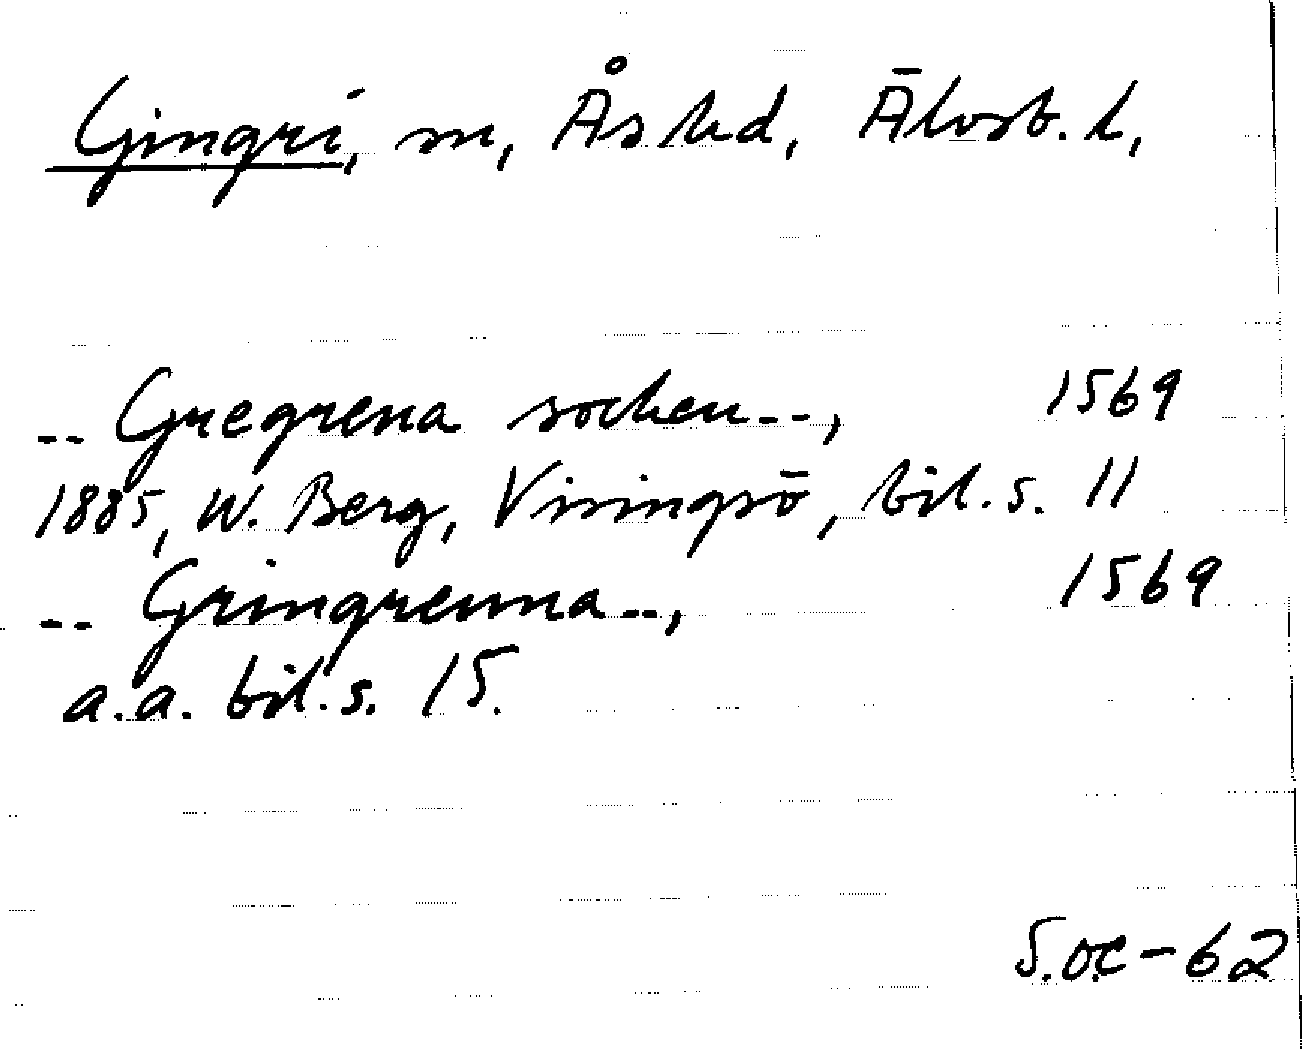 Gingri, sn, Ås hd, Älvsb. l,
-- Gregrena socken--, 1569
1885, W. Berg, Visingsö, bil. s. 11
-- Gringrenna --, 1569
a.a. bil. s. 15.
S.o.c - 62